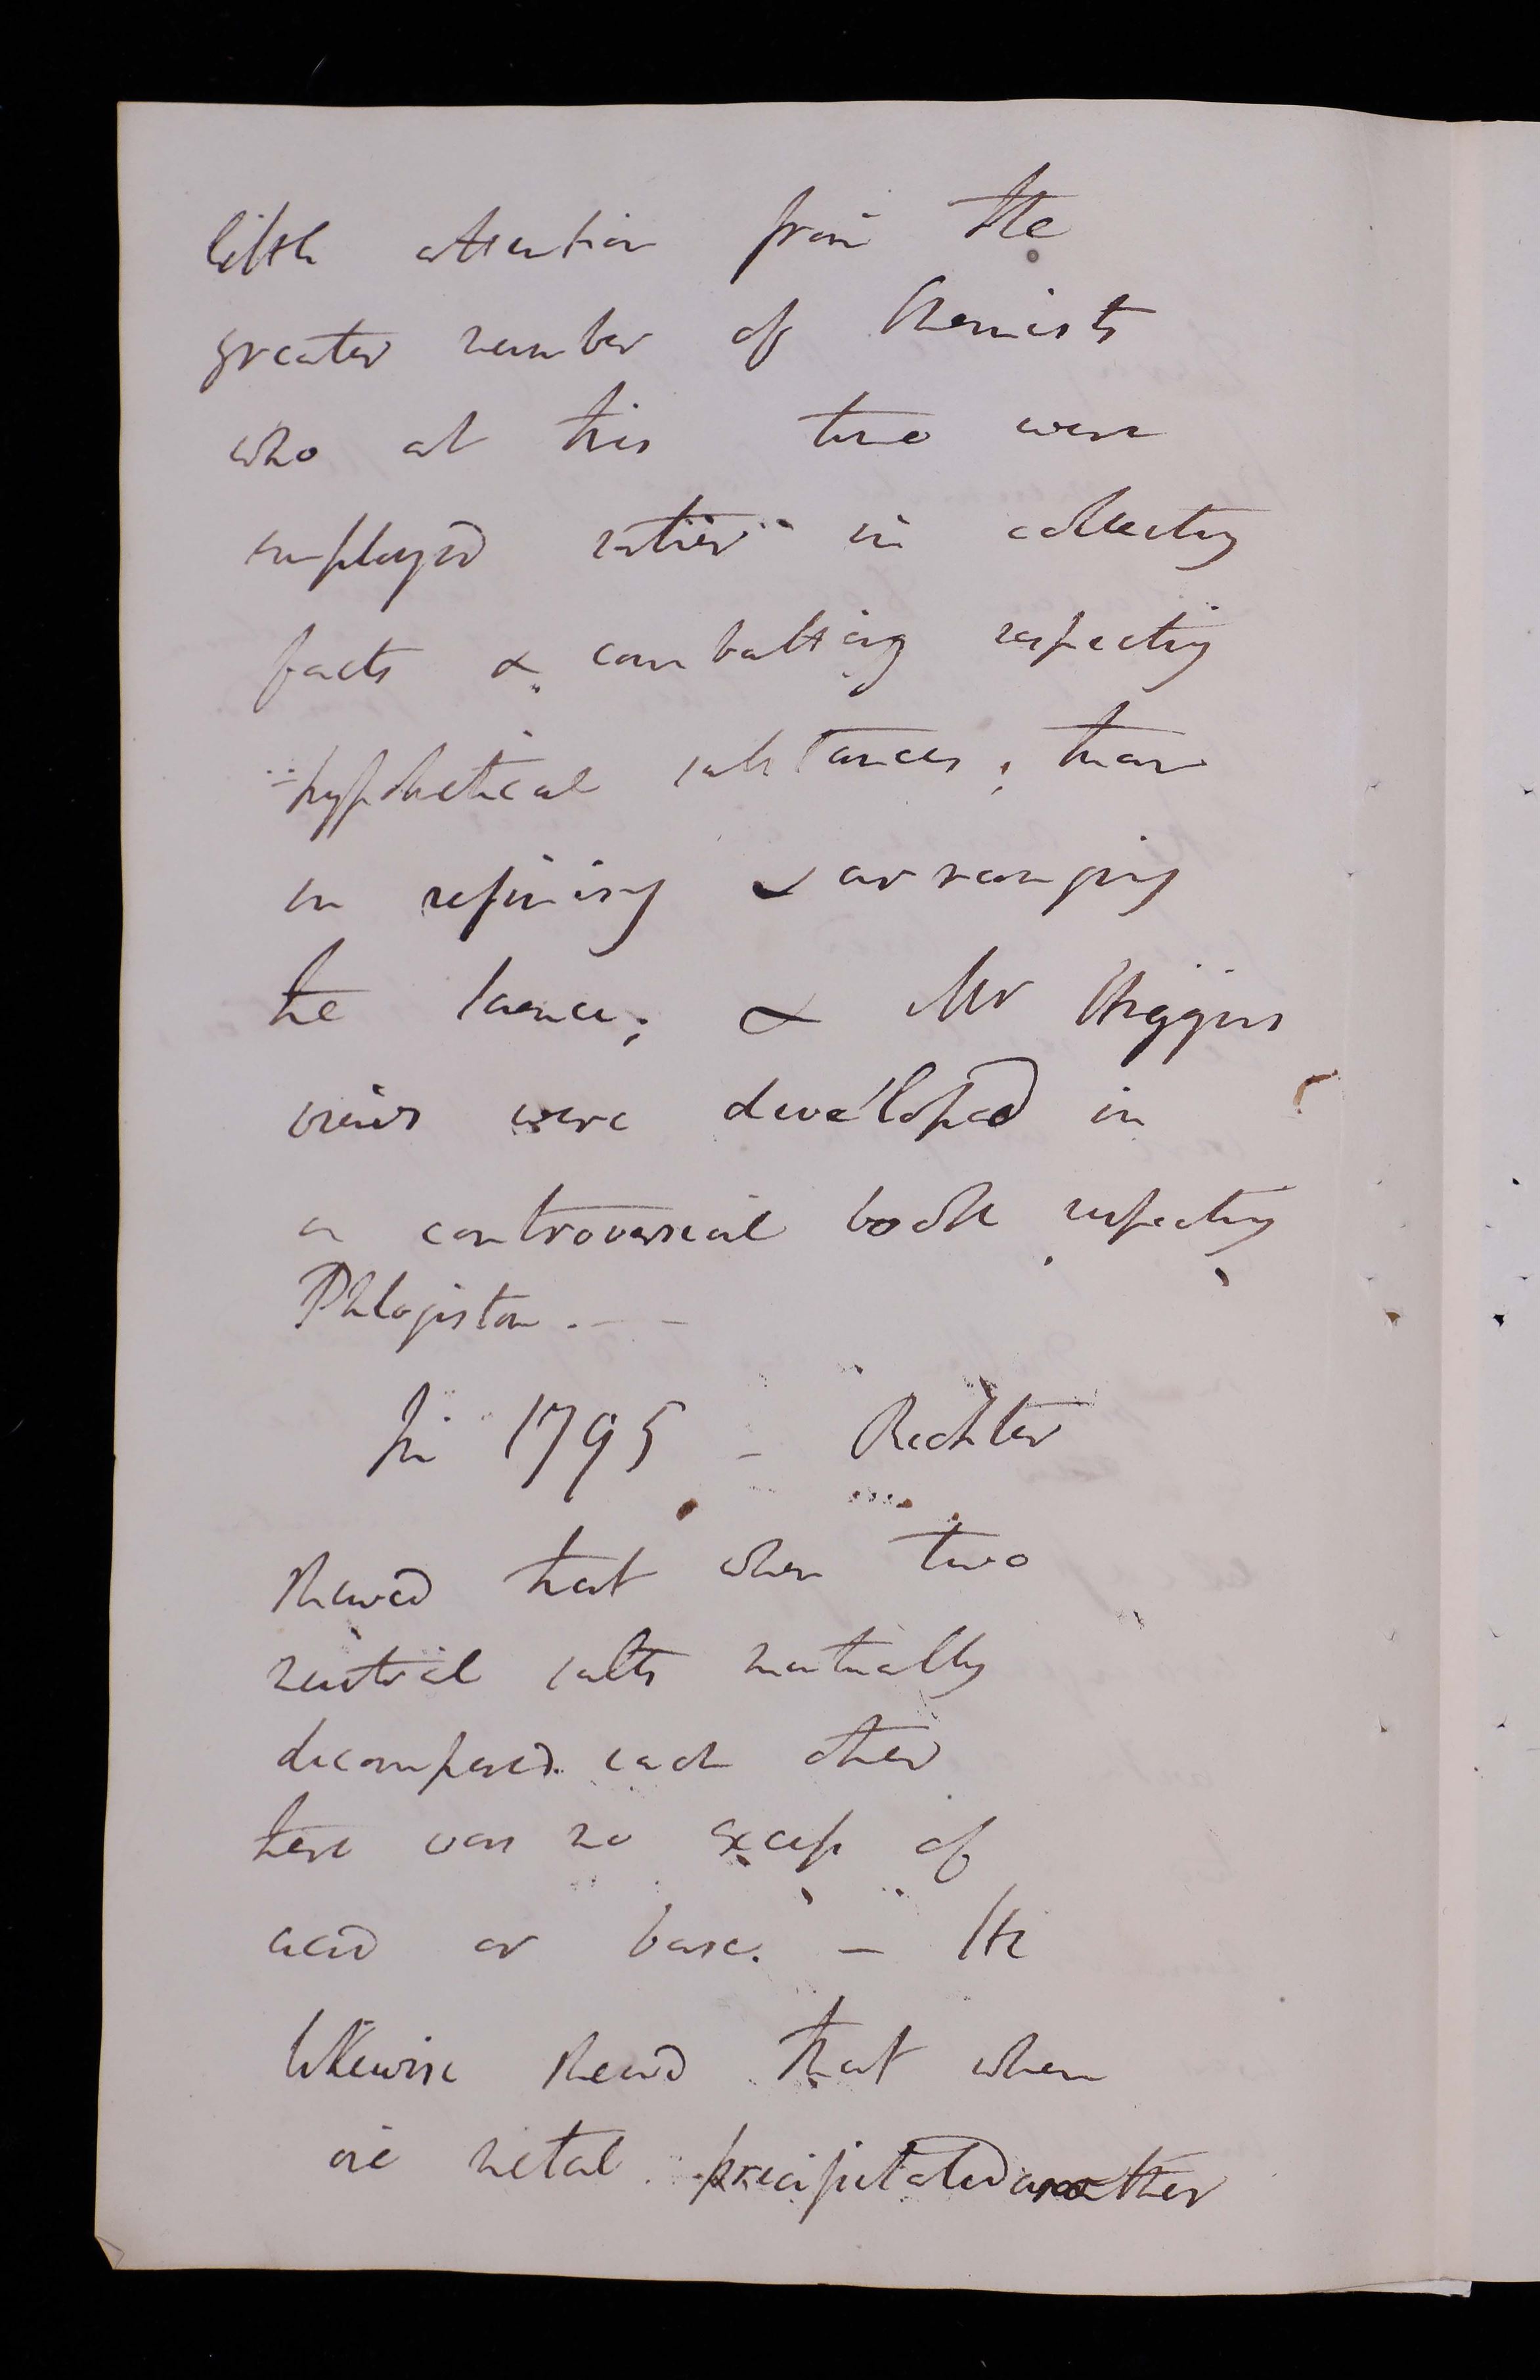 little attention from the
greater number of Chemists
who at this time were
employed rather in collecting
facts & combatting respecting
hypothetical substances, than
in refining & arranging
the science; & Mr Higgins
views were developed in
a controversial book respecting
Phlogiston. - -
In 1795 - Richter
shewed that when two
neutral salts mutually
decomposed each other
there was no excess of
acid or base. - He
likewise shewed that when
one metal precipitated another